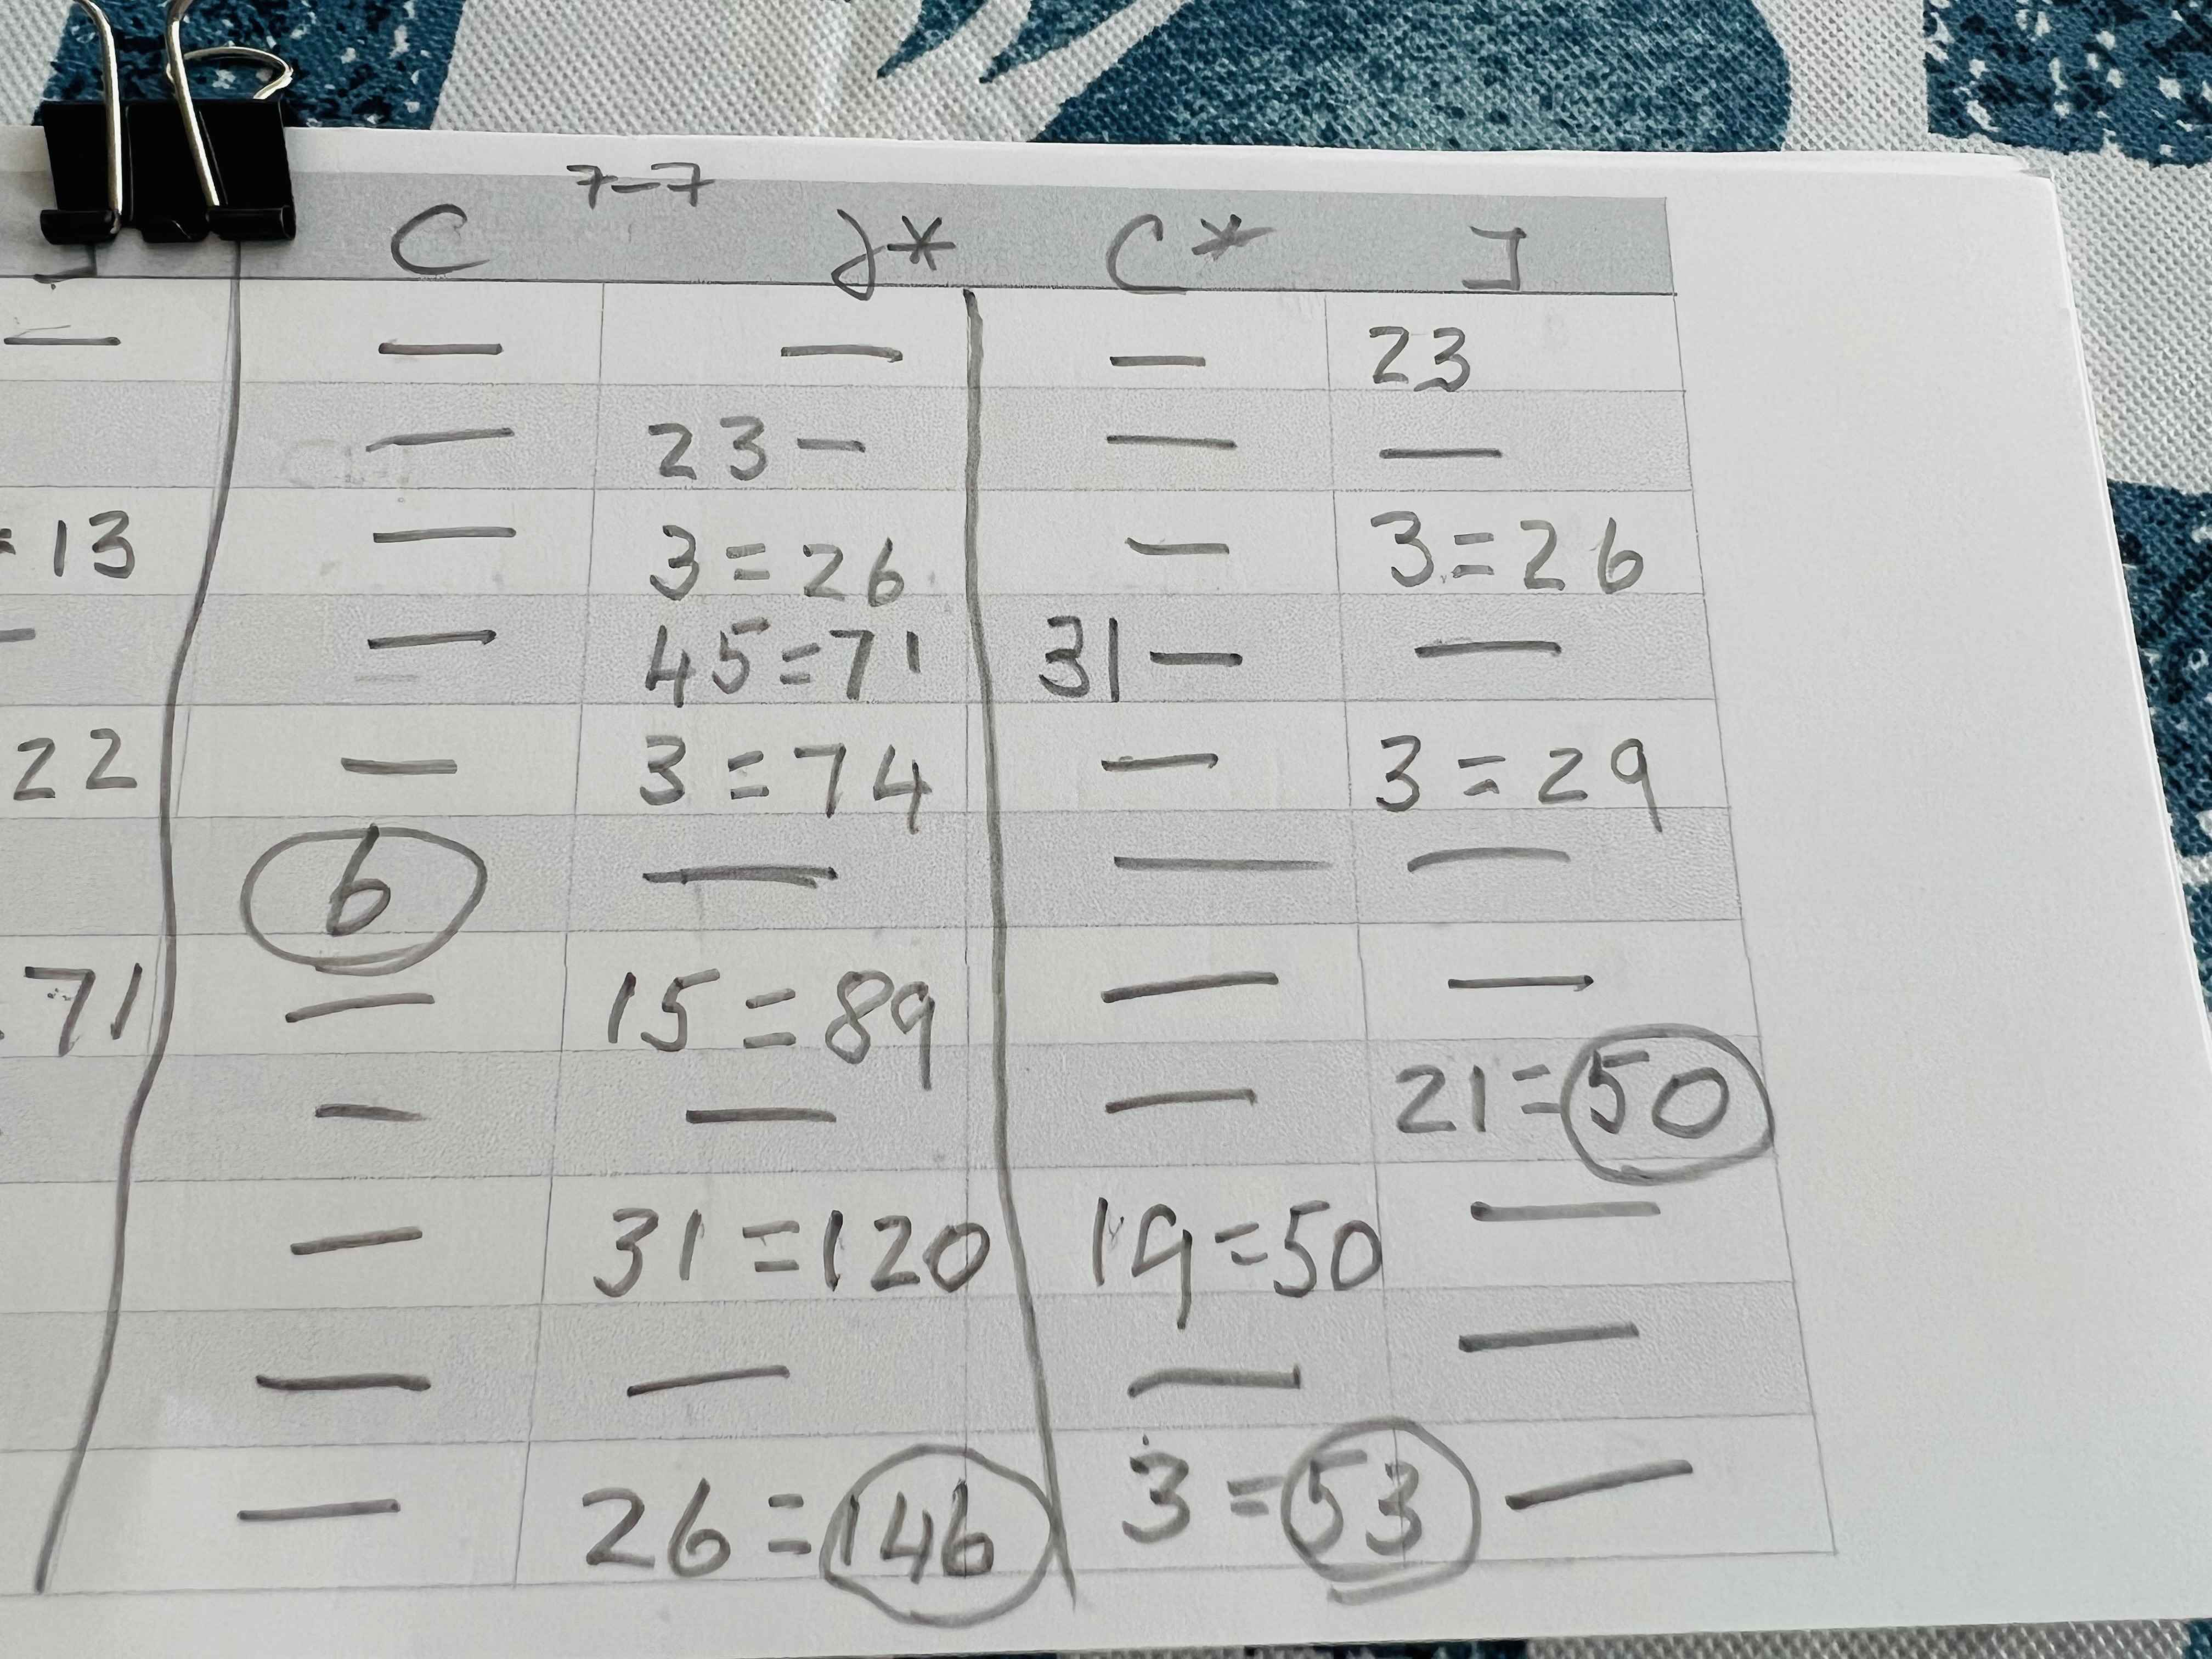 7-7
C J* C* J
— — — — 23
— 23 — — —
=13 — 3=26 — 3=26
— — 45=71 31 — —
22 — 3=74 — 3=29
6 — — —
71 — 15=89 — —
— — — 21=50
— 31=120 19=50 —
— — — —
— 26=146 3=53 —